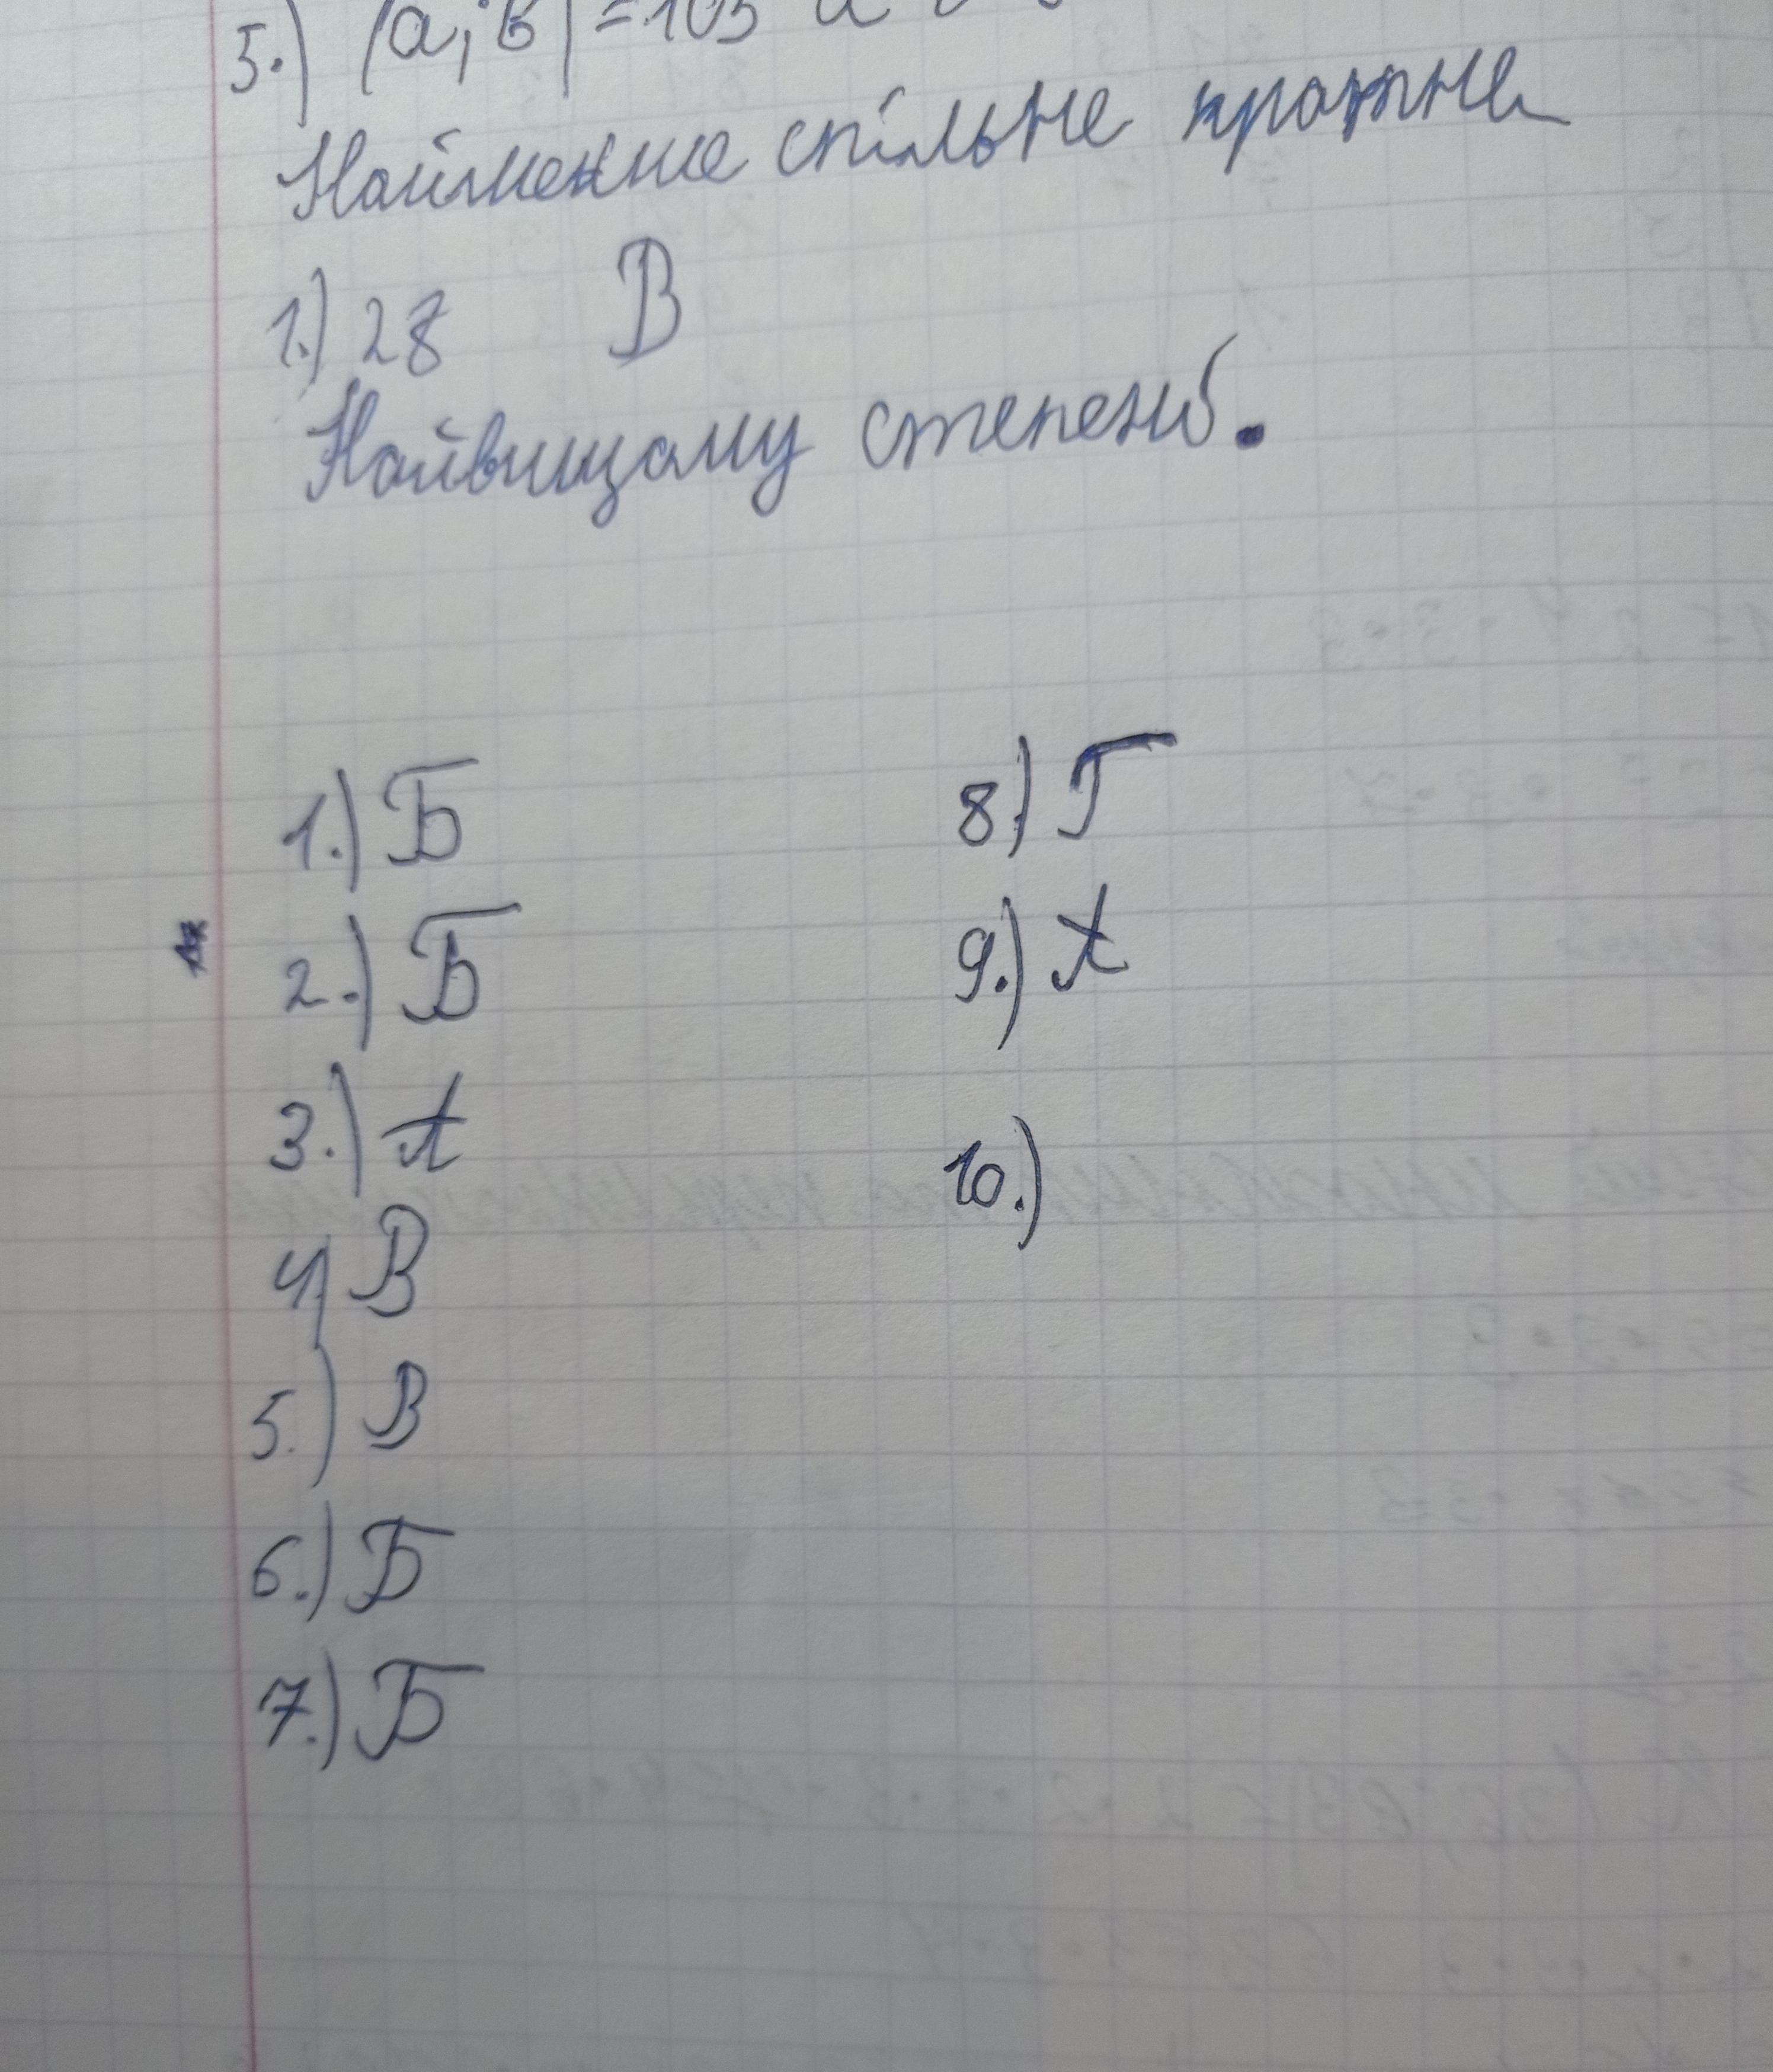 5.) (a; b) = 105
Найменше спільне кратне
1.) 28 В
Найвищому степені.
1.) Б
2.) Б
3.) А
4) В
5.) В
6.) Б
7.) Б
8) Г
9.) А
10.)